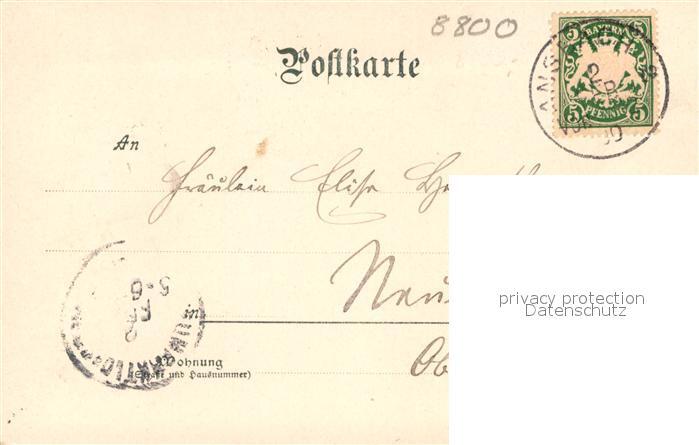 8800
Postkarte
5 BAYERN 5
5 PFENNIG 5
ANSBACH 2
An
Fräulein Elise
Neu
in
Ob
Wohnung
(Straße und Hausnummer)
5-6
privacy protection
Datenschutz